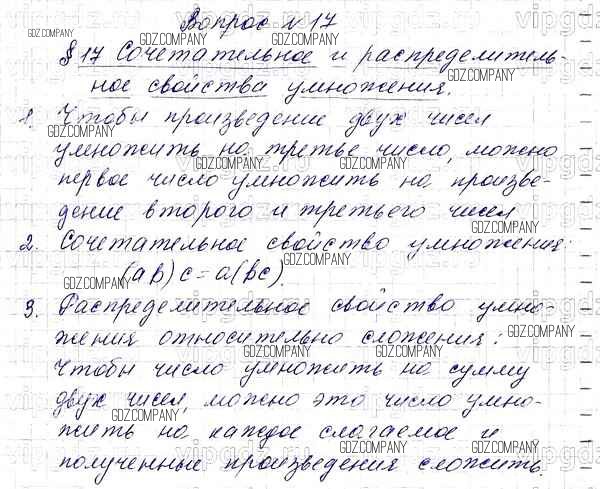 Вопрос №17
§ 17 Сочетательное и распределитель-
ное свойства умножения.
1. Чтобы произведение двух чисел
умножить на третье число, можно
первое число умножить на произве-
дение второго и третьего чисел
2. Сочетательное свойство умножения:
(ab)c=a(bc).
3. Распределительное свойство умно-
жения относительно сложения:
Чтобы число умножить на сумму
двух чисел, можно это число умно-
жить на каждое слагаемое и
полученные произведения сложить.